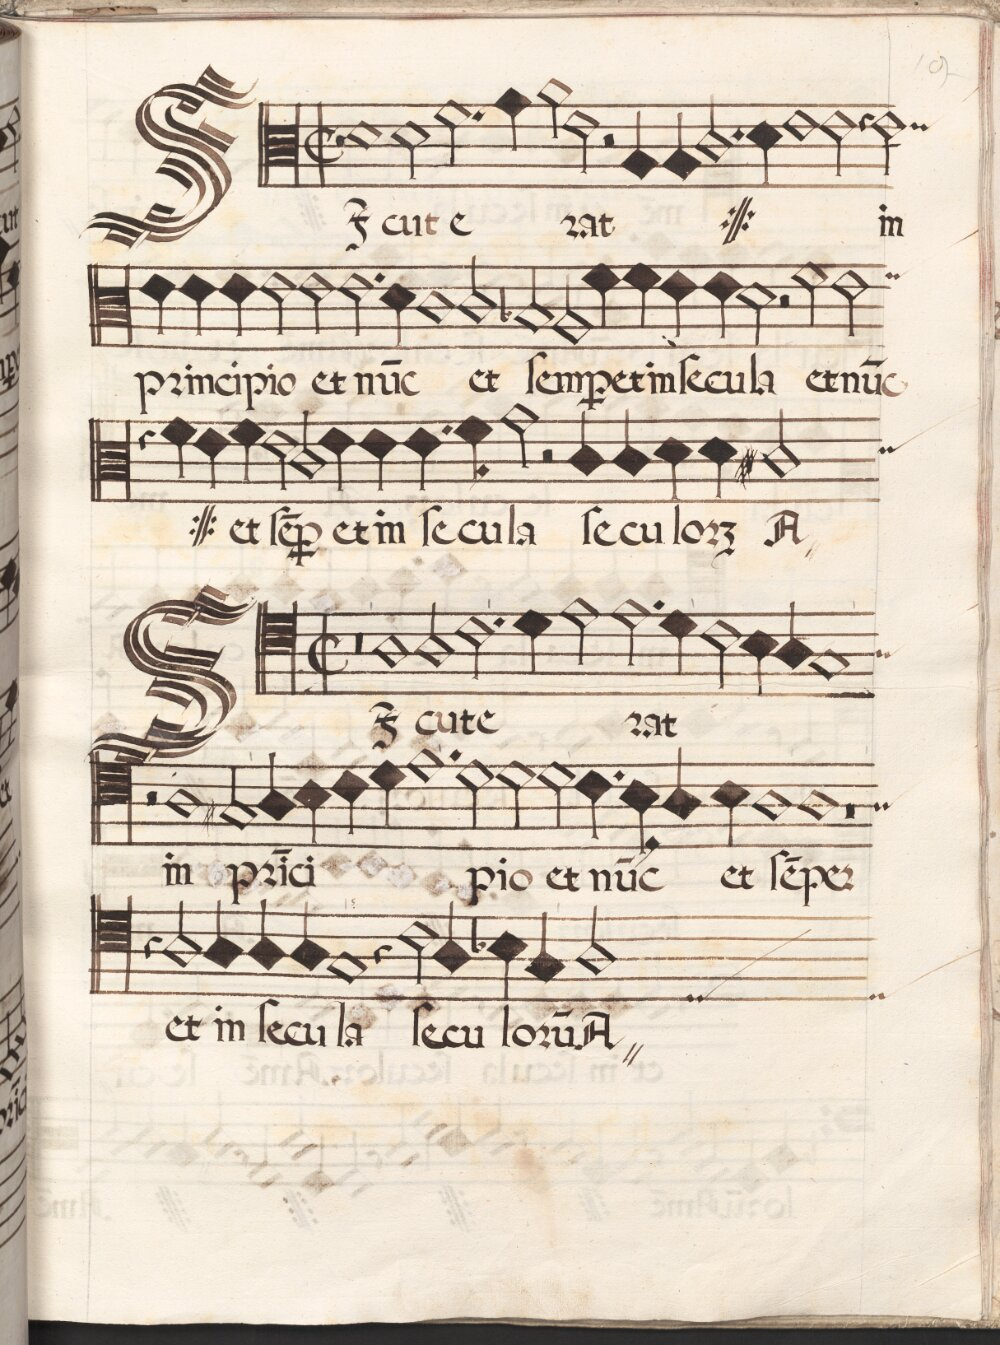 SI cut e rat in
principio et nūc et semp et in secula et nūc
et sēp et in secula seculorꝫ A
SI cut e rat
in prīci pio et nūc et sēper
et in secula secu lorūA